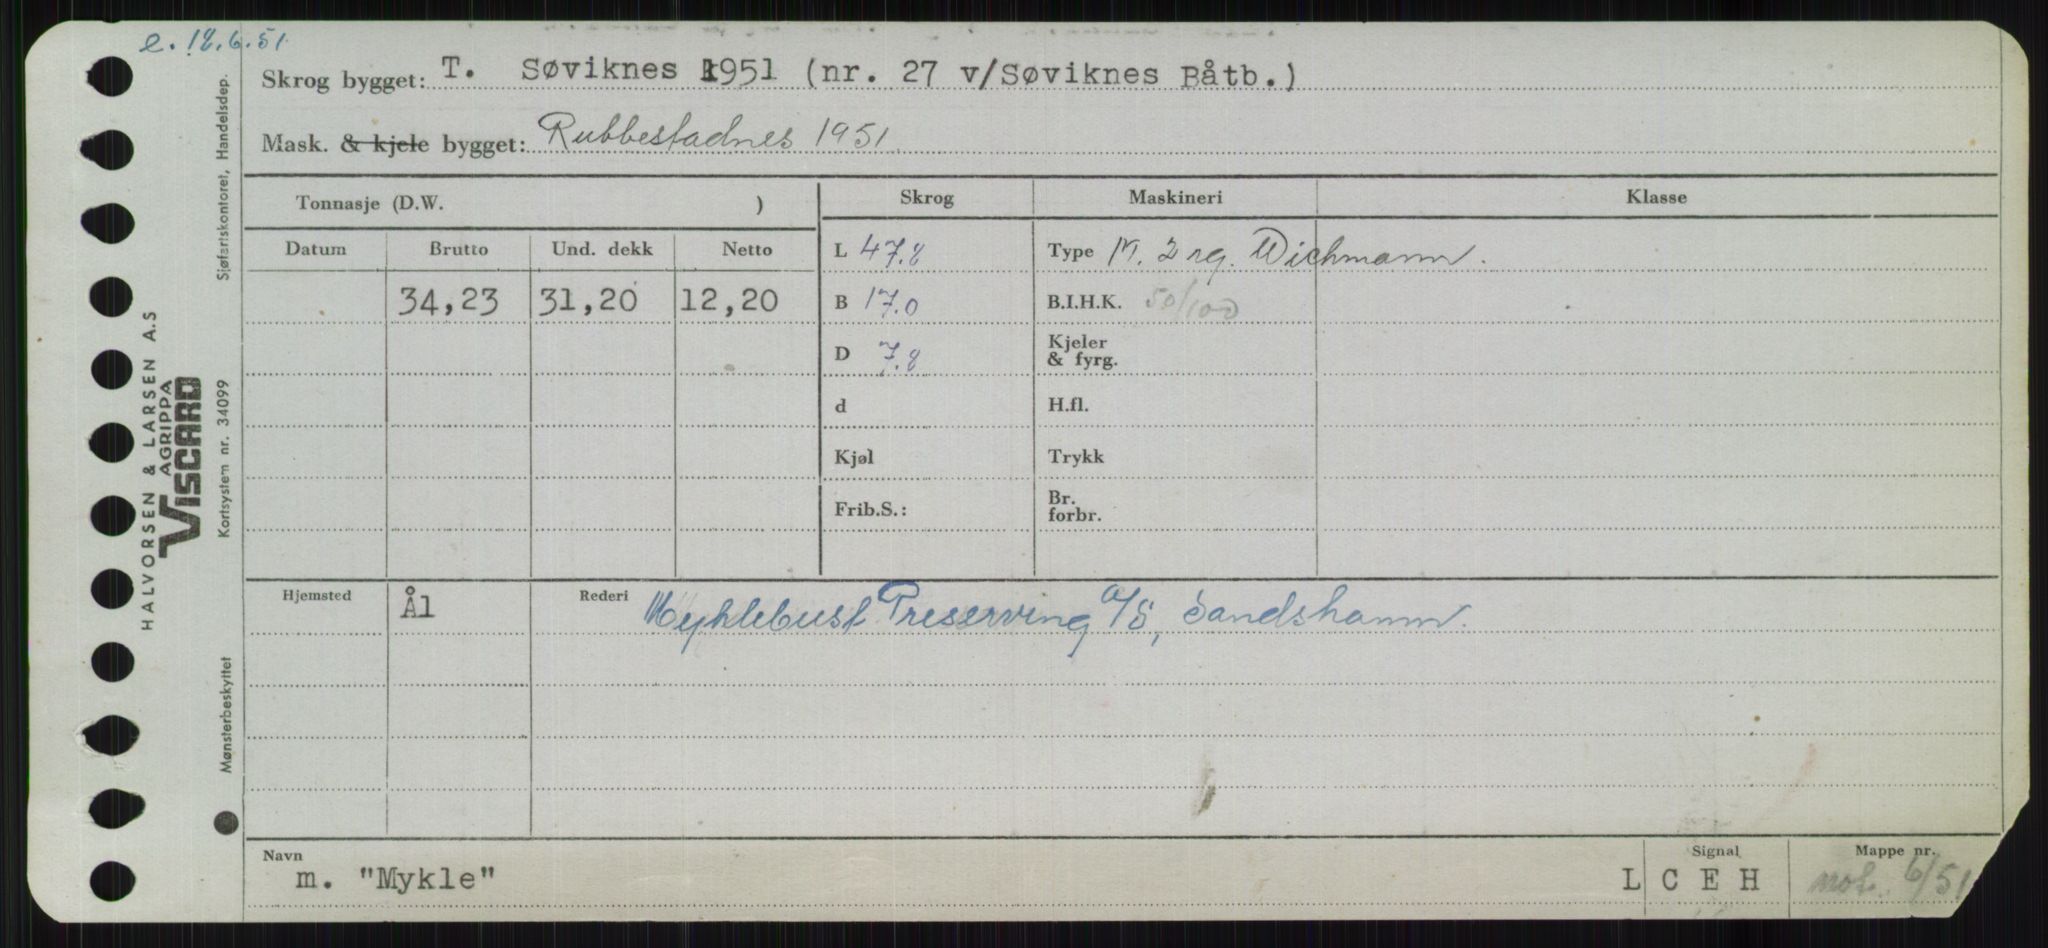 e. 18.6.51.
Skrog bygget: T. Søviknes 1951 (nr. 27 v/Søviknes Båtb.)
Mask. & kjele bygget: Rubbestadnes 1951
Tonnasje (D.W. ) Skrog Maskineri Klasse
Datum Brutto Und. dekk Netto L 47.8 Type M. 2 sg. Wichmann.
34,23 31,20 12,20 B 17.0 B.I.H.K. 50/100
D 7.8 Kjeler & fyrg.
d H.fl.
Kjøl Trykk
Frib.S.: Br. forbr.
Hjemsted Ål Rederi Myklebust Preserving A/S, Sandshamn.
Navn Signal Mappe nr.
m. "Mykle" L C E H mot. 6/51
HALVORSEN & LARSEN A.S
AGRIPPA
VISCARD
Sjøfartskontoret, Handelsdep.
Kortsystem nr. 34099
Mønsterbeskyttet